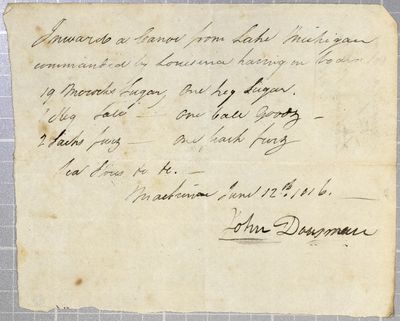 Inwards a Canoe from Lake Michigan
commanded by Louisena having on board
19 Mococks Sugar, One Keg Sugar.
1 Keg Salt — One bale Goods —
2 Packs furs — One pack furs
&c &c. —
Mackinac June 12th 1816. —
John Dousman